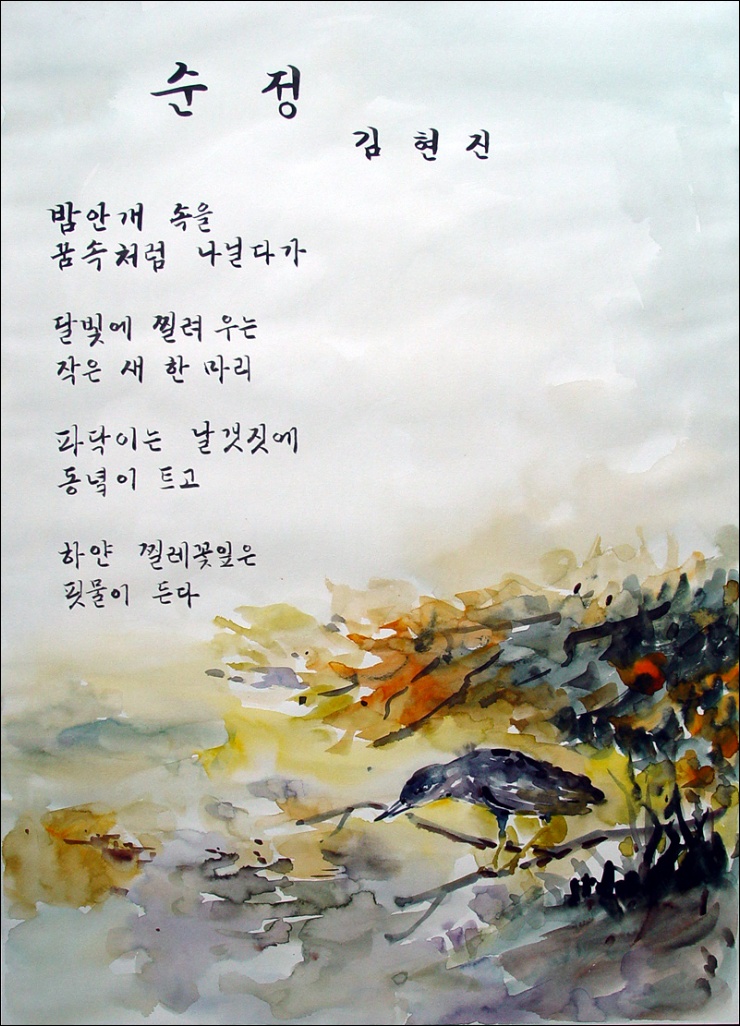 순 정
김 현 진
밤안개 속을
꿈속처럼 나닐다가
달빛에 찔려 우는
작은 새 한 마리
파닥이는 날갯짓에
동녘이 트고
하얀 찔레꽃잎은
핏물이 든다